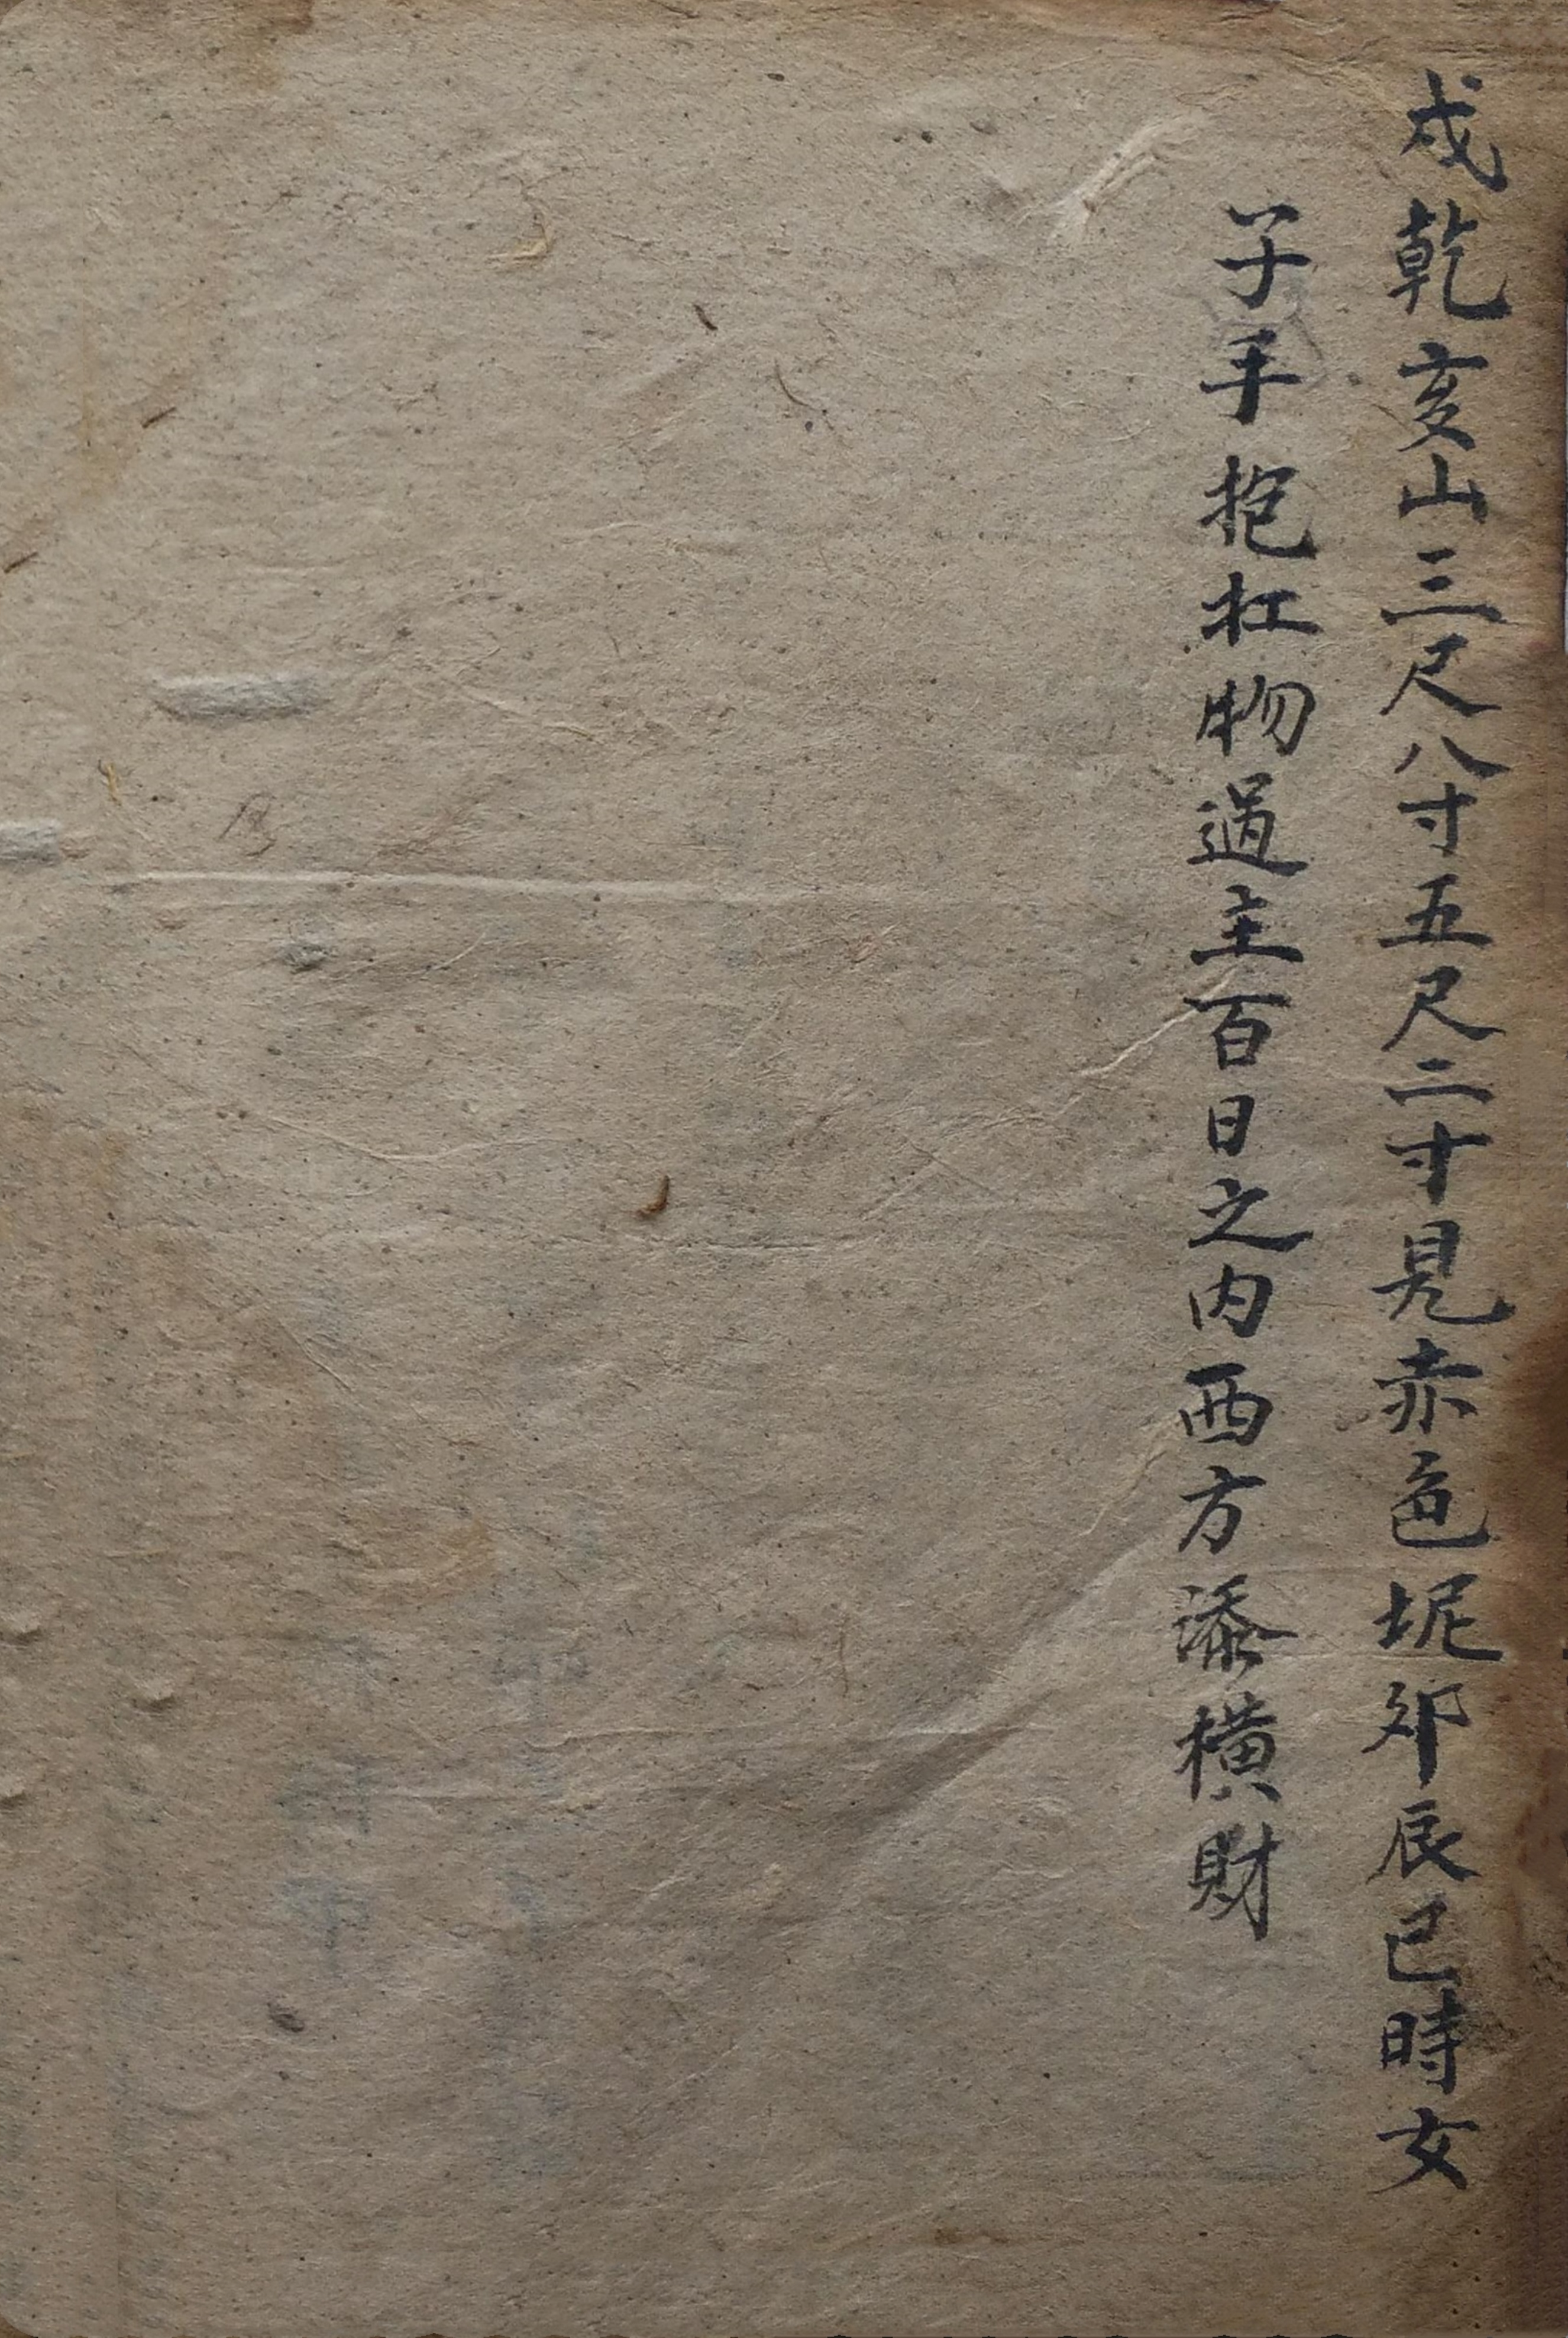 戌乾亥山三尺八寸五尺二寸見赤色坭卯辰巳時女
子手抱扛物過主百日之内西方添橫財